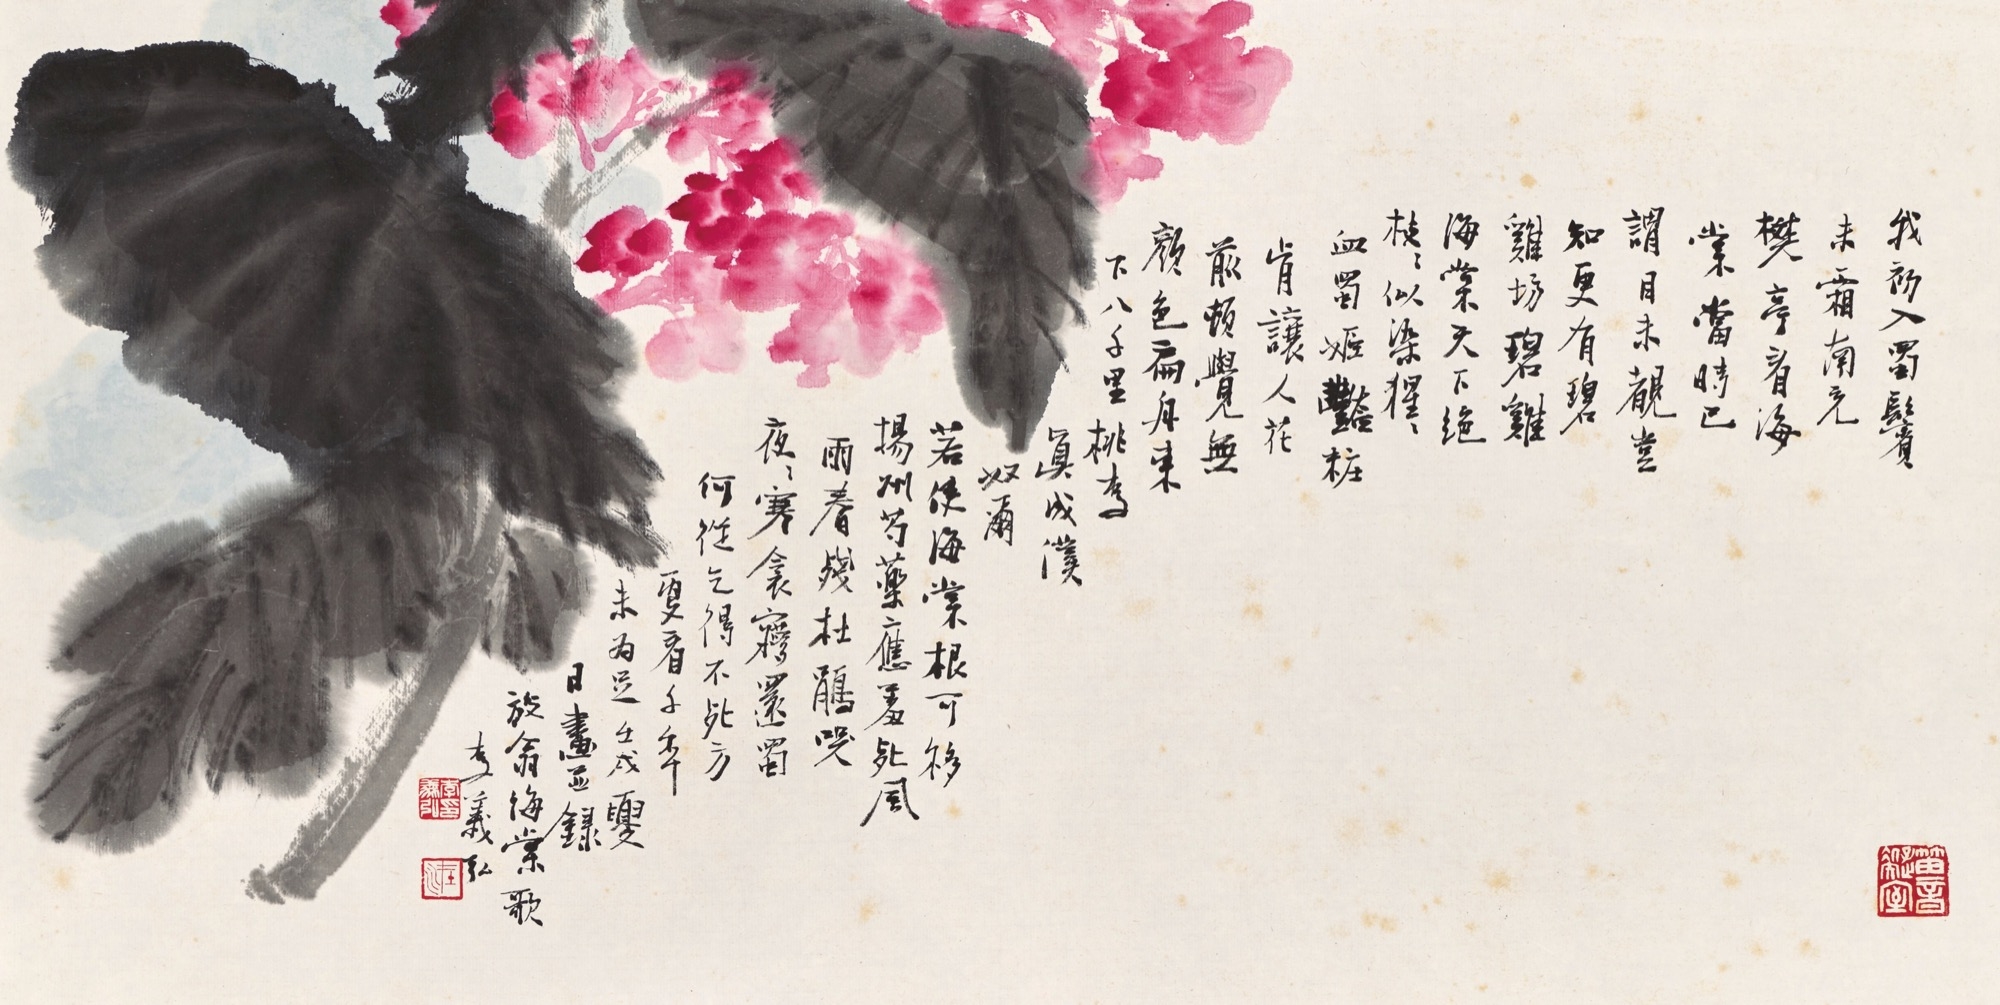 我初入蜀鬢
未霜南充
樊亭看海
棠當時已
謂目未覩豈
知更有碧
雞坊碧雞
海棠天下絕
枝〻似染猩〻
血蜀姬豔粧
肯讓人花
前頓覺無
顏色扁舟東
下八千里桃李
真成僕
奴爾
若使海棠根可移
揚州芍藥應羞死風
雨春殘杜鵑哭
夜〻寒衾夢還蜀
何從乞得不死方
更看千年
未為足壬戌夏
日畫並錄
放翁海棠歌
李義弘